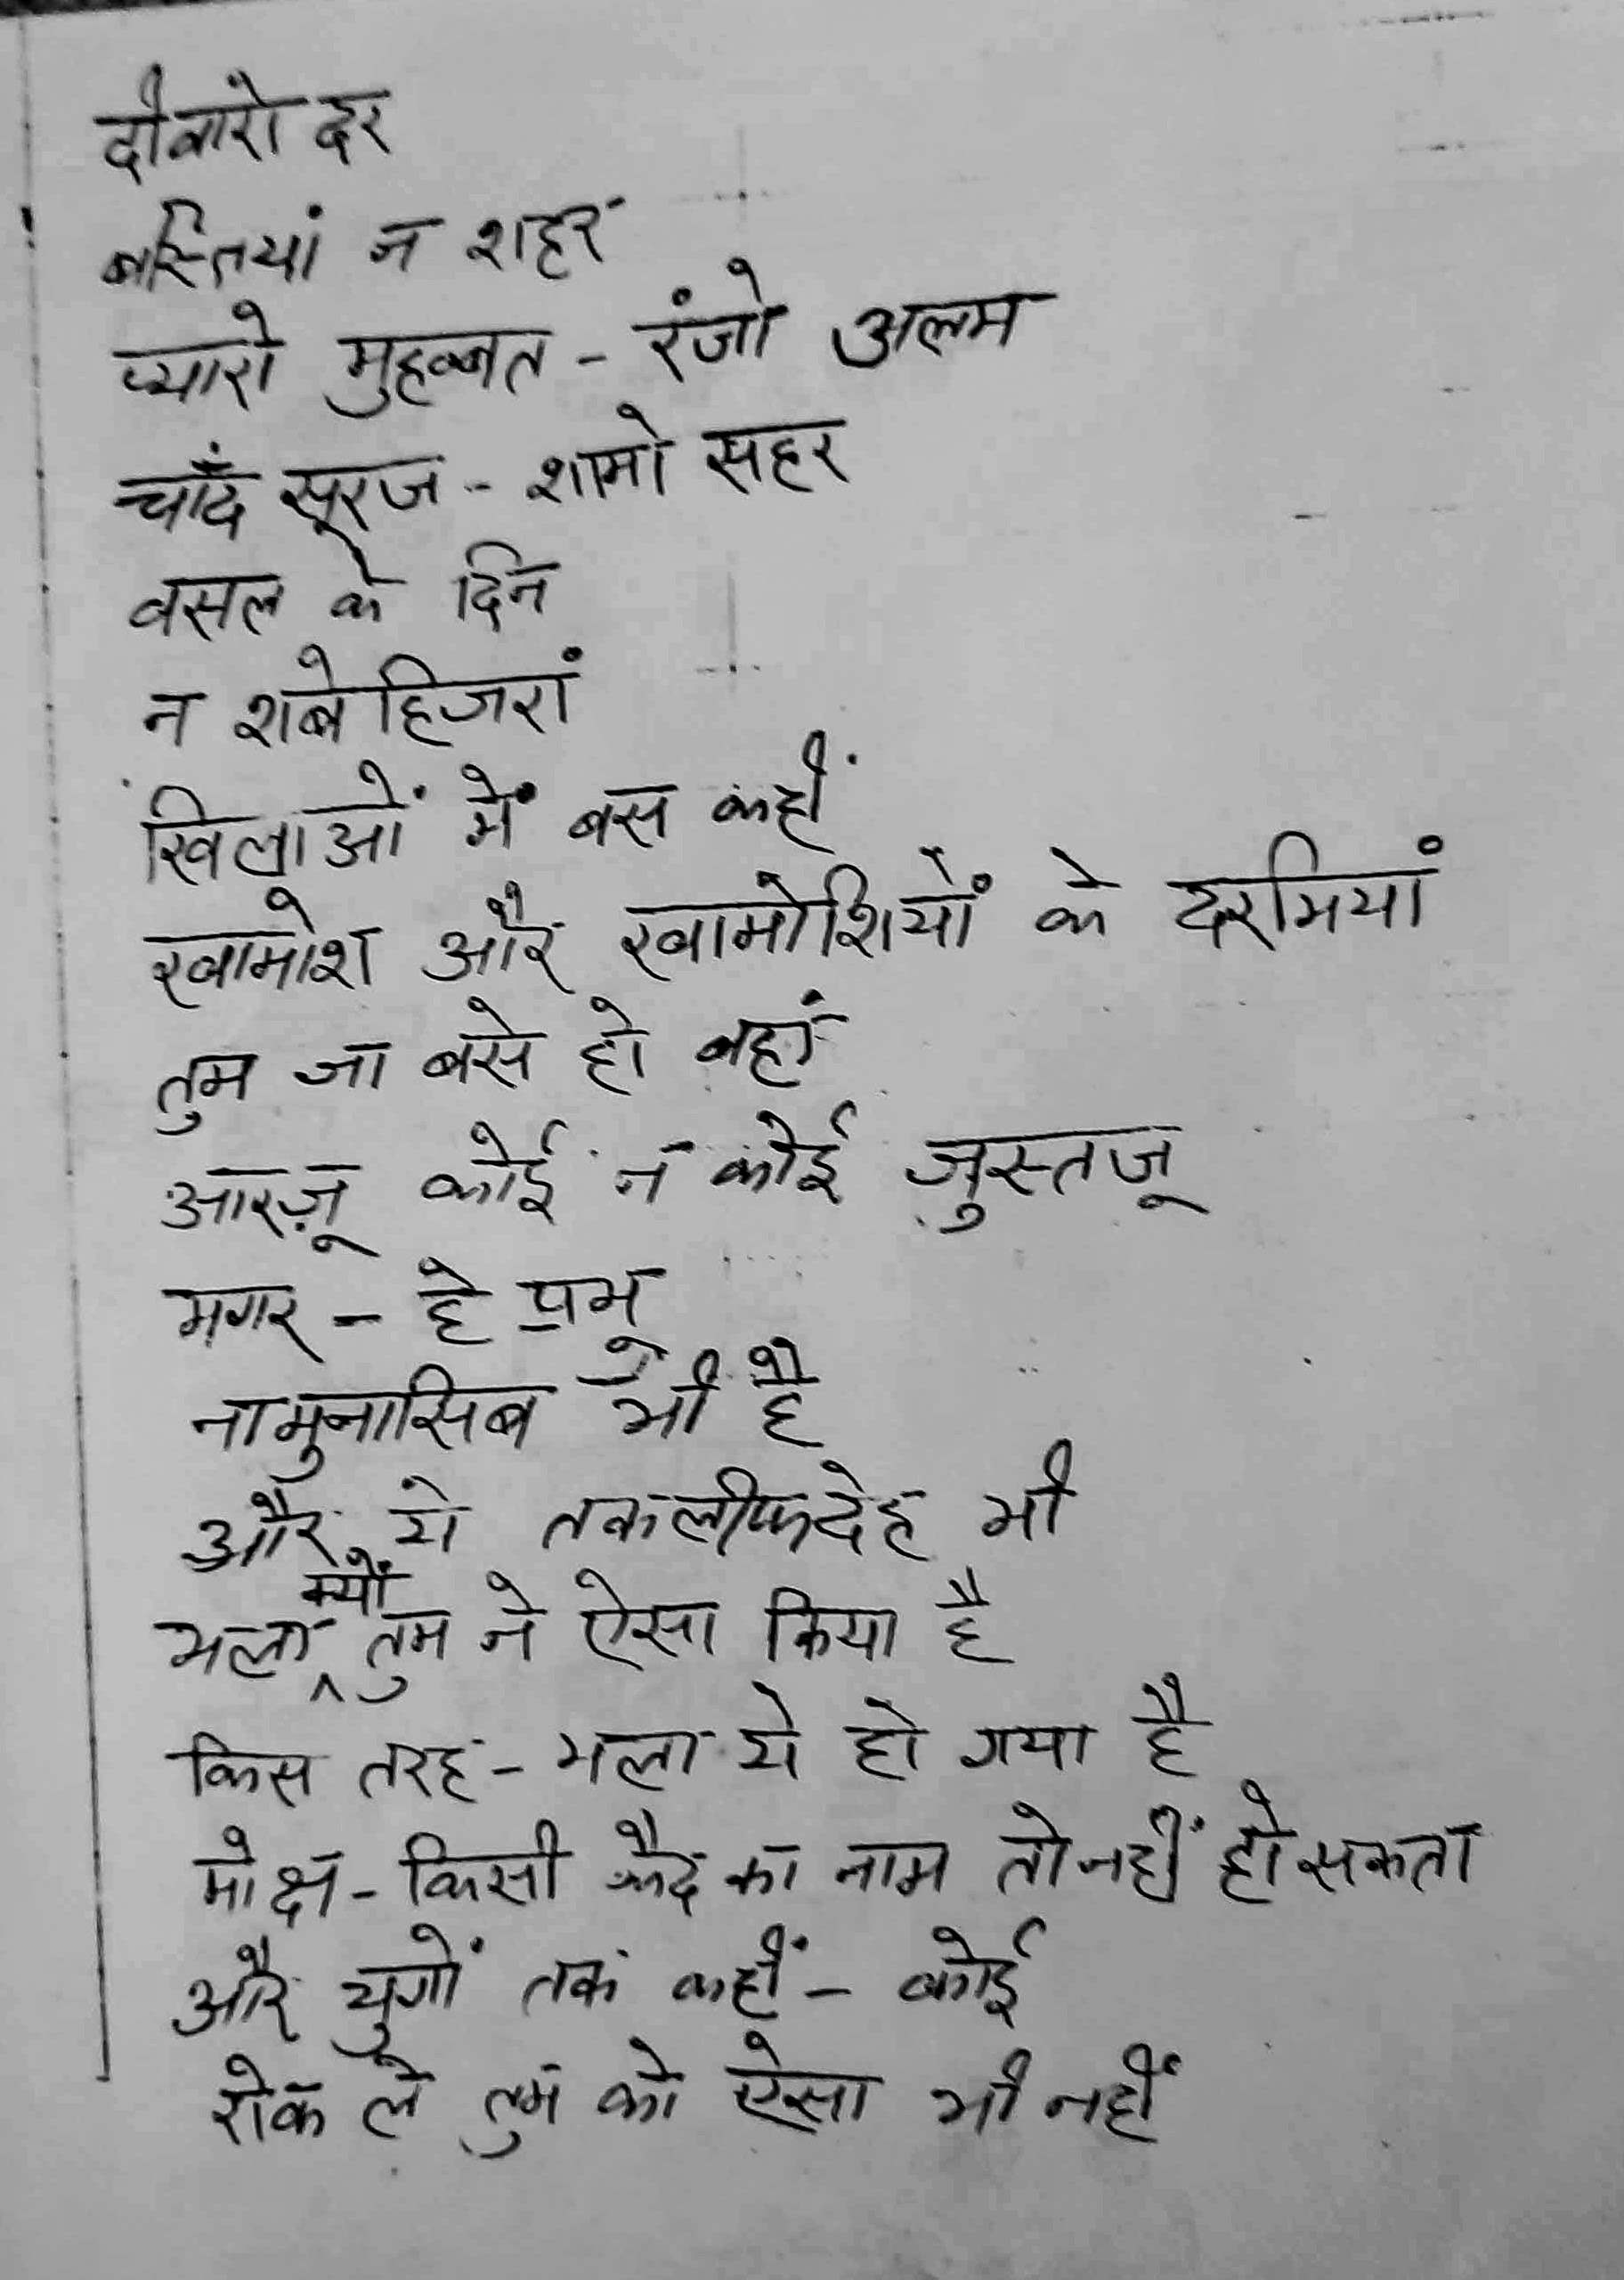 दीवारो दर
बस्तियां न शहर
प्यारो मुहब्बत - रंजो अलम
चाँद सूरज - शामो सहर
वसल के दिन
न शबे हिजरां
खिलाओं में बस कहीं
खामोश और खामोशियों के दरमियां
तुम जा बसे हो वहां
आरज़ू कोई न कोई जुस्तजू
मगर - हे प्रभू
नामुनासिब भी है
और ये तकलीफदेह भी
भला क्यों तुम ने ऐसा किया है
किस तरह - भला ये हो गया है
मोक्ष - किसी कैद का नाम तो नहीं हो सकता
और युगों तक कहीं - कोई
रोक ले तुम को ऐसा भी नहीं